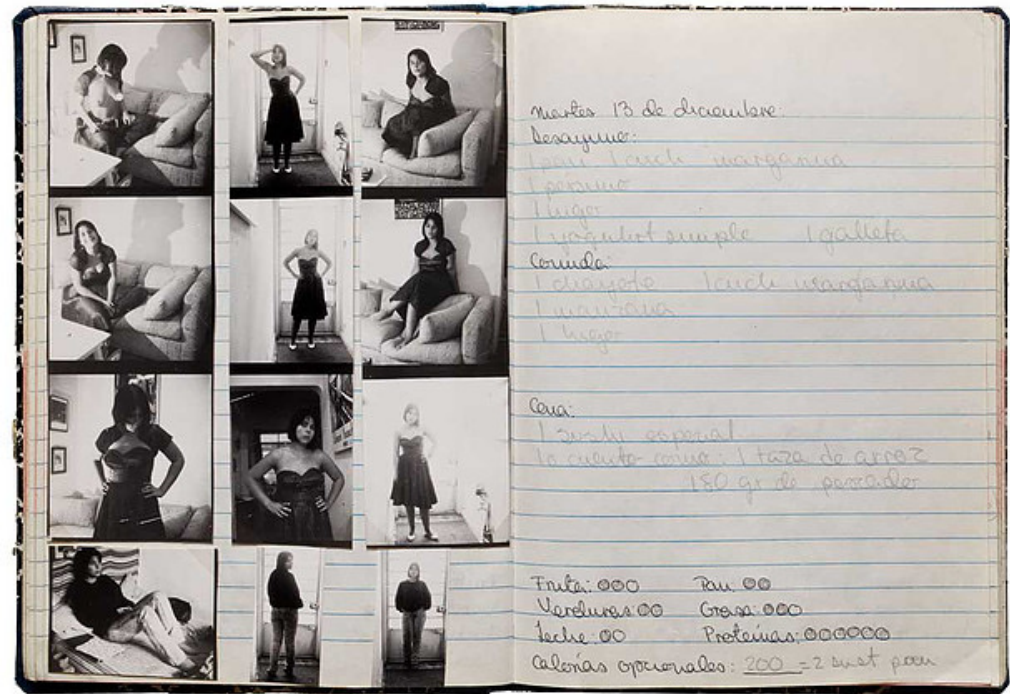 martes 13 de diciembre:
Desayuno:
1 pan 1 cuch margarina
1 pérsimo
1 higo
1 yoghurt simple 1 galleta
Comida:
1 chayote 1 cuch margarina
1 manzana
1 higo
Cena:
1 sushi especial
lo cuento como: 1 taza de arroz
180 gr de pescado
Fruta: OOO Pan: OO
Verduras: OO Grasa: OOO
Leche: OO Proteínas: OOOOOO
Calorías opcionales: 200 = 2 sust pan